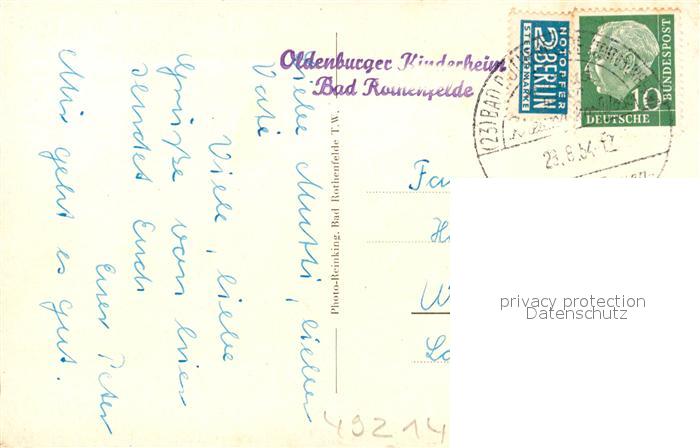 Oldenburger Kinderheim
Bad Rothenfelde
NOTOPFER
2 BERLIN
STEUERMARKE
10
DEUTSCHE
BUNDESPOST
(23) BAD
23.8.54-17
Liebe Mutti, lieber
Vati
Viele, liebe
Grüße von hier
sendet Euch
Euer Peter
Mir geht es gut.
Photo-Reinking, Bad Rothenfelde T.W.
Fa
W
privacy protection
Datenschutz
49214